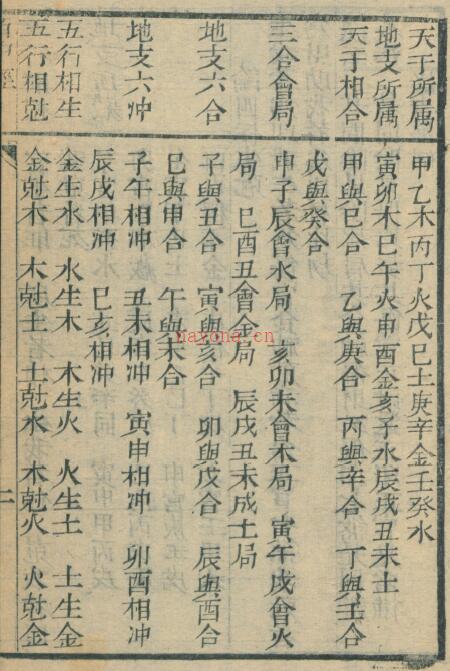 天干所属 甲乙木丙丁火戊巳土庚辛金壬癸水
地支所属 寅卯木巳午火申酉金亥子水辰戌丑未土
天干相合 甲與巳合 乙與庚合 丙與辛合 丁與壬合
戊與癸合
三合會局 申子辰會水局 亥卯未會木局 寅午戌會火
局 巳酉丑會金局 辰戌丑未成土局
地支六合 子與丑合 寅與亥合 卯與戌合 辰與酉合
巳與申合 午與未合
地支六冲 子午相冲 丑未相冲 寅申相冲 卯酉相冲
辰戌相冲 巳亥相冲
五行相生 金生水 水生木 木生火 火生土 土生金
五行相尅 金尅木 木尅土 土尅水 水尅火 火尅金
二
nayona.cn